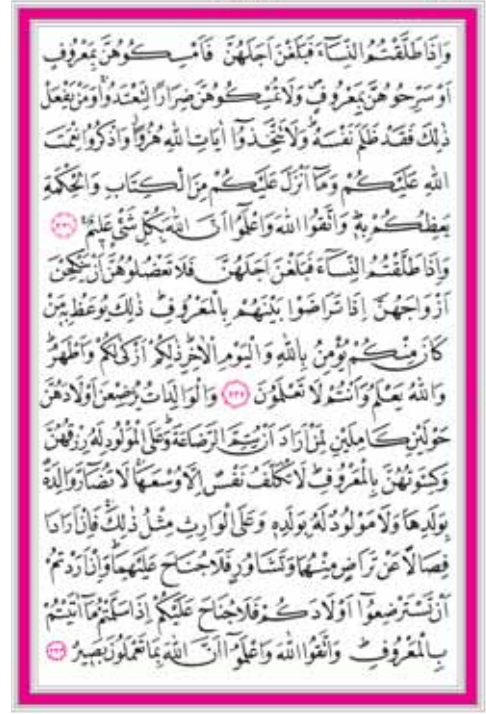 وَاِذَا طَلَّقْتُمُ النِّسَٓاءَ فَبَلَغْنَ اَجَلَهُنَّ فَاَمْسِكُوهُنَّ بِمَعْرُوفٍ
اَوْ سَرِّحُوهُنَّ بِمَعْرُوفٍ وَلَا تُمْسِكُوهُنَّ ضِرَارًا لِتَعْتَدُوا وَمَنْ يَفْعَلْ
ذٰلِكَ فَقَدْ ظَلَمَ نَفْسَهُ وَلَا تَتَّخِذُٓوا اٰيَاتِ اللّٰهِ هُزُوًا وَاذْكُرُوا نِعْمَتَ
اللّٰهِ عَلَيْكُمْ وَمَٓا اَنْزَلَ عَلَيْكُمْ مِنَ الْكِتَابِ وَالْحِكْمَةِ
يَعِظُكُمْ بِهِ وَاتَّقُوا اللّٰهَ وَاعْلَمُٓوا اَنَّ اللّٰهَ بِكُلِّ شَيْءٍ عَلِيمٌ ﴿٢٣١﴾
وَاِذَا طَلَّقْتُمُ النِّسَٓاءَ فَبَلَغْنَ اَجَلَهُنَّ فَلَا تَعْضُلُوهُنَّ اَنْ يَنْكِحْنَ
اَزْوَاجَهُنَّ اِذَا تَرَاضَوْا بَيْنَهُمْ بِالْمَعْرُوفِ ذٰلِكَ يُوعَظُ بِهِ مَنْ
كَانَ مِنْكُمْ يُؤْمِنُ بِاللّٰهِ وَالْيَوْمِ الْاٰخِرِ ذٰلِكُمْ اَزْكٰى لَكُمْ وَاَطْهَرُ
وَاللّٰهُ يَعْلَمُ وَاَنْتُمْ لَا تَعْلَمُونَ ﴿٢٣٢﴾ وَالْوَالِدَاتُ يُرْضِعْنَ اَوْلَادَهُنَّ
حَوْلَيْنِ كَامِلَيْنِ لِمَنْ اَرَادَ اَنْ يُتِمَّ الرَّضَاعَةَ وَعَلَى الْمَوْلُودِ لَهُ رِزْقُهُنَّ
وَكِسْوَتُهُنَّ بِالْمَعْرُوفِ لَا تُكَلَّفُ نَفْسٌ اِلَّا وُسْعَهَا لَا تُضَٓارَّ وَالِدَةٌ
بِوَلَدِهَا وَلَا مَوْلُودٌ لَهُ بِوَلَدِهِ وَعَلَى الْوَارِثِ مِثْلُ ذٰلِكَ فَاِنْ اَرَادَا
فِصَالًا عَنْ تَرَاضٍ مِنْهُمَا وَتَشَاوُرٍ فَلَا جُنَاحَ عَلَيْهِمَا وَاِنْ اَرَدْتُمْ
اَنْ تَسْتَرْضِعُٓوا اَوْلَادَكُمْ فَلَا جُنَاحَ عَلَيْكُمْ اِذَا سَلَّمْتُمْ مَٓا اٰتَيْتُمْ
بِالْمَعْرُوفِ وَاتَّقُوا اللّٰهَ وَاعْلَمُٓوا اَنَّ اللّٰهَ بِمَا تَعْمَلُونَ بَصِيرٌ ﴿٢٣٣﴾